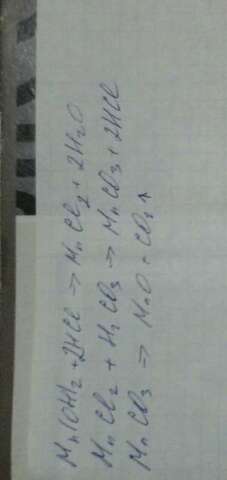 Mn(OH)₂ + 2HCl → MnCl₂ + 2H₂O
MnCl₂ + H₂CO₃ → MnCO₃ + 2HCl
MnCO₃ → MnO + CO₂↑